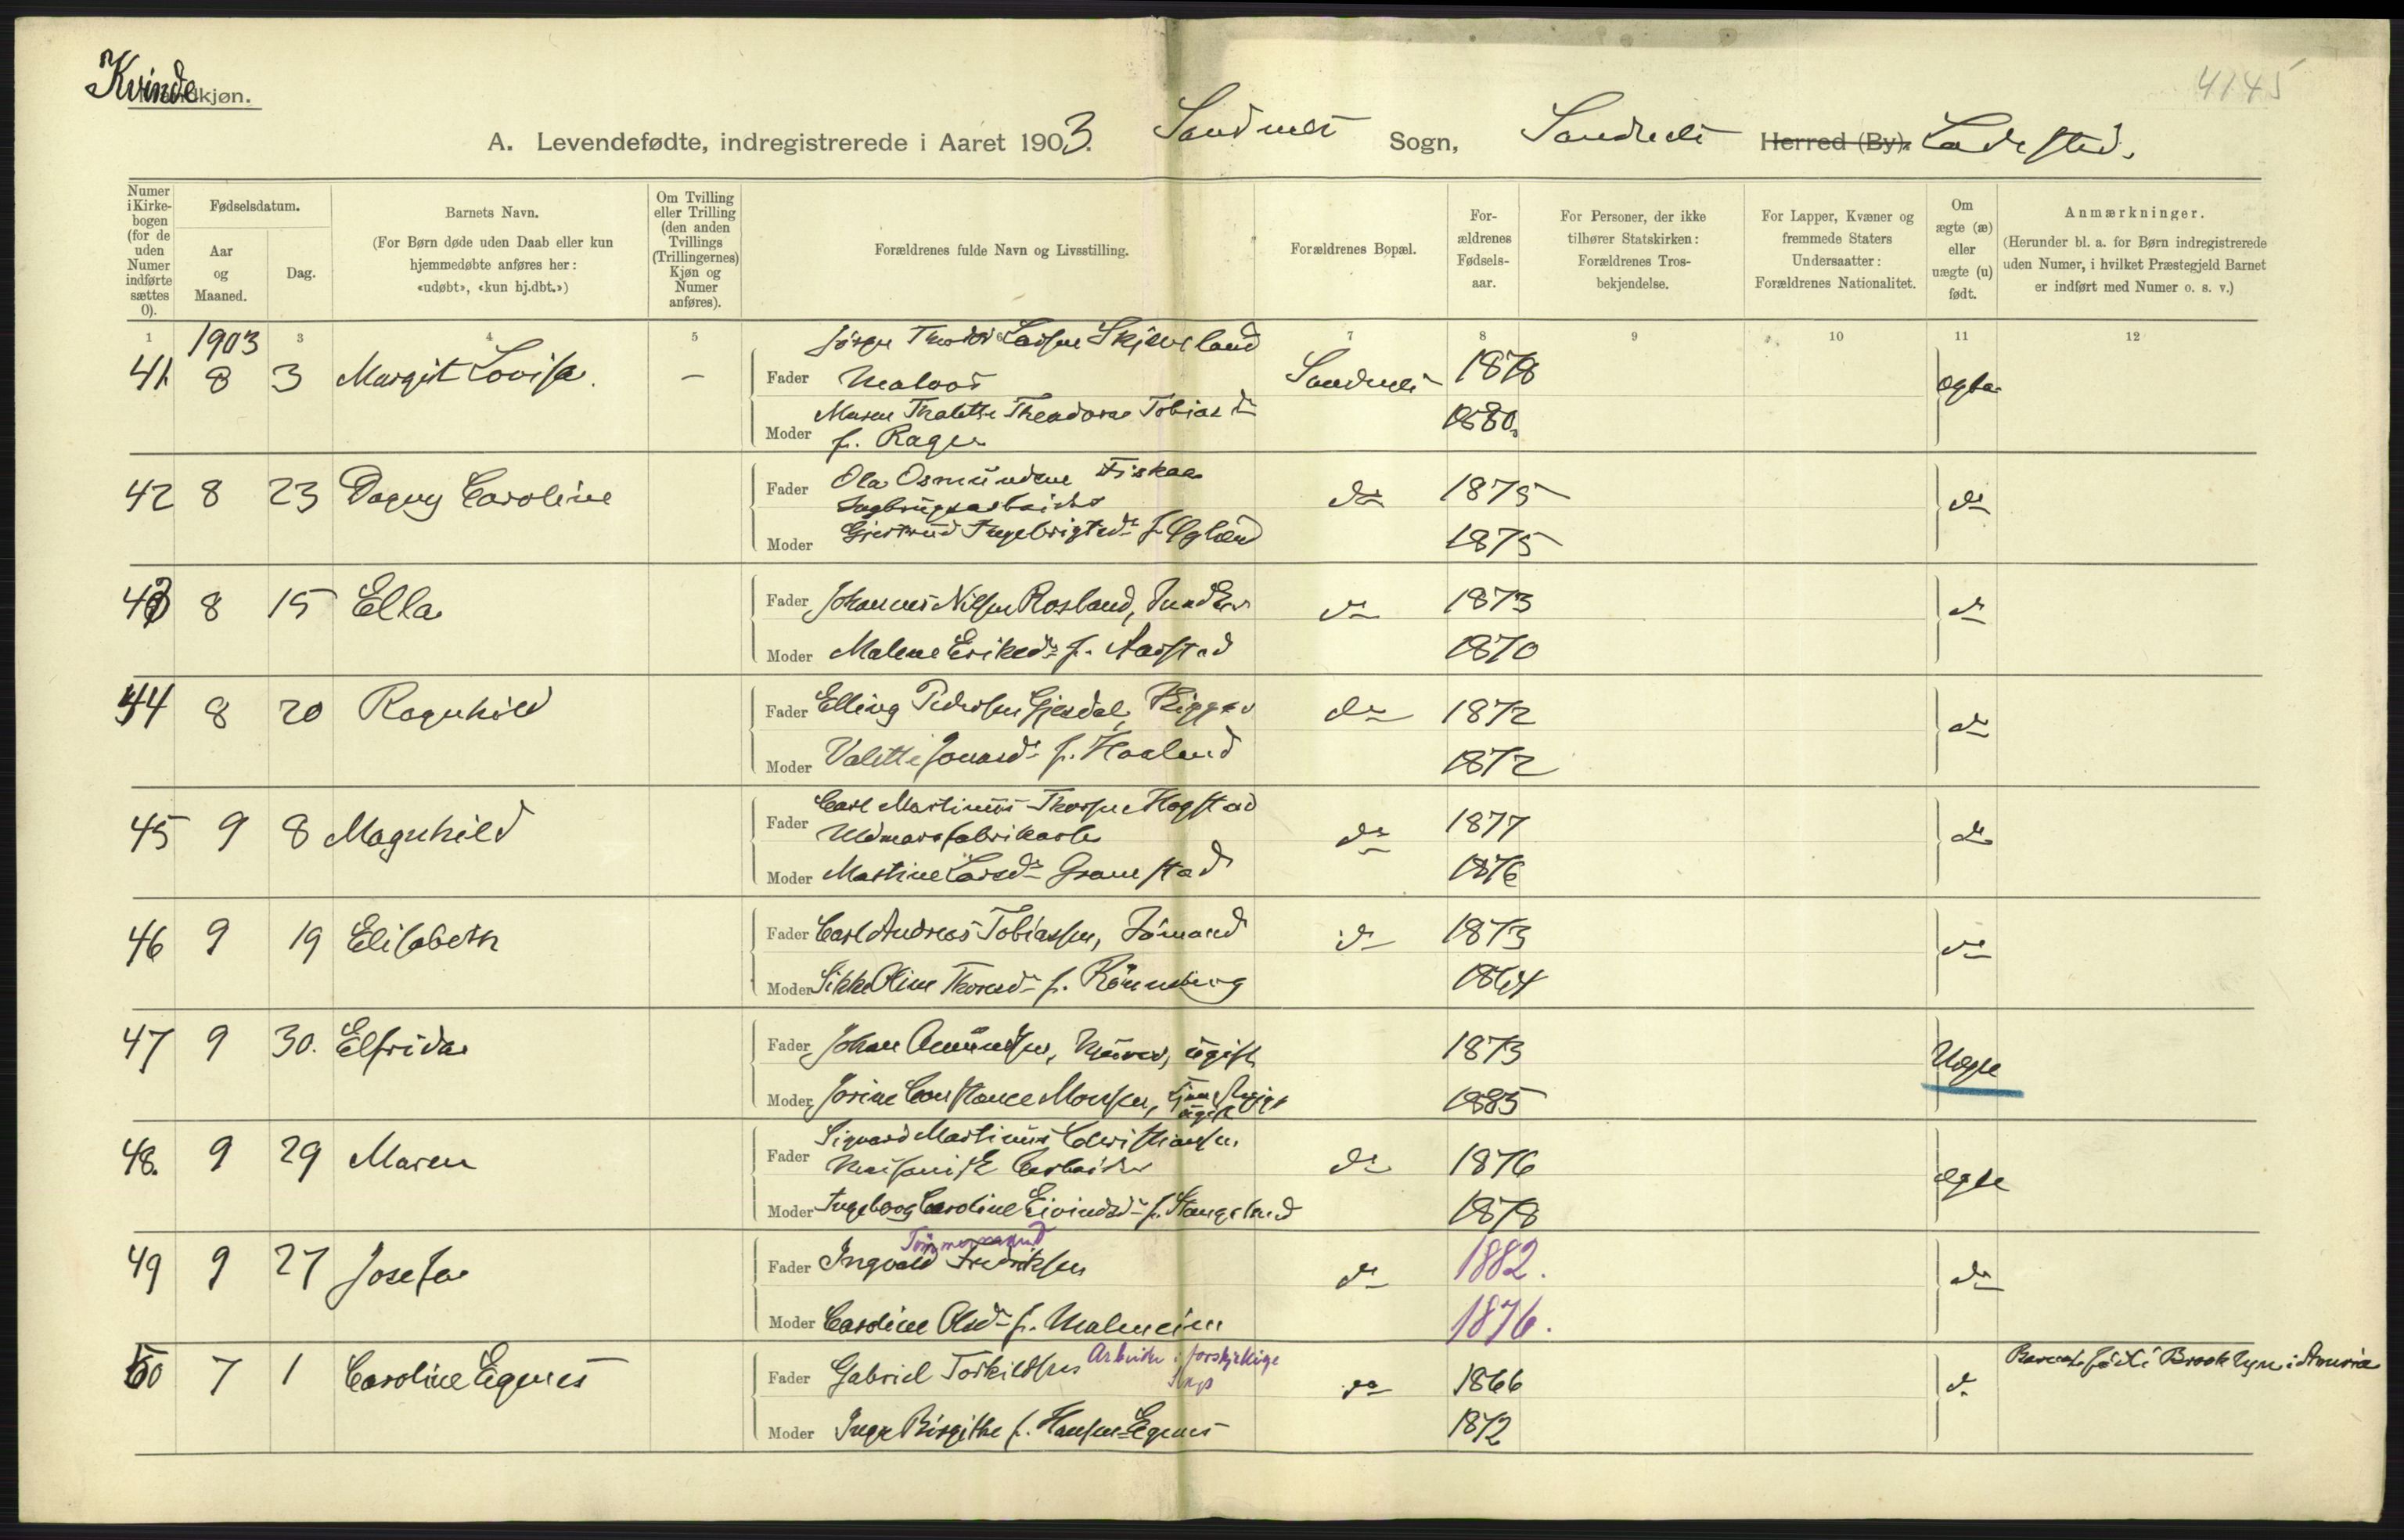 Kvindekjøn.
4145
A. Levendefødte, indregistrerede i Aaret 1903. Sandnes Sogn, Sandnes Herred (By). Ladested.
Numer i Kirkebogen (for de uden Numer indførte sættes 0).
Fødselsdatum.
Aar og Maaned.
Dag.
Barnets Navn.
(For Børn døde uden Daab eller kun hjemmedøbte anføres her: «udøbt», «kun hj.dbt.»)
Om Tvilling eller Trilling (den anden Tvillings (Trillingernes) Kjøn og Numer anføres).
Forældrenes fulde Navn og Livsstilling.
Forældrenes Bopæl.
For-ældrenes Fødsels-aar.
For Personer, der ikke tilhører Statskirken: Forældrenes Trosbekjendelse.
For Lapper, Kvæner og fremmede Staters Undersaatter: Forældrenes Nationalitet.
Om ægte (æ) eller uægte (u) født.
Anmærkninger.
(Herunder bl. a. for Børn indregistrerede uden Numer, i hvilket Præstegjeld Barnet er indført med Numer o. s. v.)
1 3 4 5 6 7 8 9 10 11 12
1903
41. 8 3 Margit Lovisa. –
Jørgen Theodor Larsen Skjæveland
Fader Maler Sandnes 1878 ægte
Maren Thalette Theodora Tobiasdr
Moder f. Rage 1880.
42 8 23 Dagny Caroline
Fader Ola Osmundsen Fiskaa do 1875 do
Moder Gjertrud Ingebrigtsdr f. Øgland 1875
43 8 15 Ella
Fader Johannes Nilsen Rosland, do 1873 do
Moder Malene Eriksdr f. Aarstad 1870
44 8 20 Ragnhild
Fader Elling Pedersen Gjesdal, Rigger do 1872 do
Moder Valette Jonasdr f. Haaland 1872
45 9 8 Magnhild
Carl Martinius Thorsen Hogstad
Fader Uldvarefabrikarb do 1877 do
Moder Martine Larsdr Gramstad 1876
46 9 19 Elisabeth
Fader Carl Andreas Tobiassen, Sømand do 1873 do
Moder Sikke Oline Thoresdr f. Rønneberg 1864
47 9 30. Elfrida
Fader Johan Amundsen, Murer, ugift 1873 Uægte
Moder Jorine Constance Monsen, Tjenestepige ugift 1885
48. 9 29 Maren
Sigvard Martinius Christiansen
Fader do 1876 ægte
Moder Ingeborg Caroline Eivindsdr f. Stangeland 1878
49 9 27 Josefa
Tømmermand
Fader Ingvald Fredriksen do 1882. do
Moder Caroline Olsdr f. Malmeim 1876.
50 7 1 Caroline Egenes
Fader Gabriel Torkildsen Arbeider i forskjellige do 1866 do Barnet født i Brooklyn i Amerika
Moder Inga Birgithe f. Hansen Egenes 1872